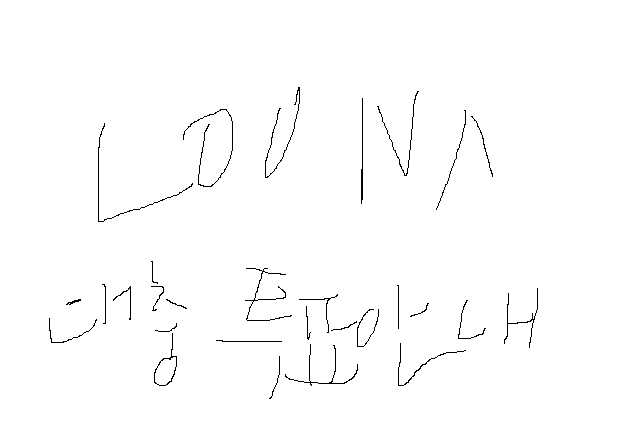 LOONA
대충 투표안내